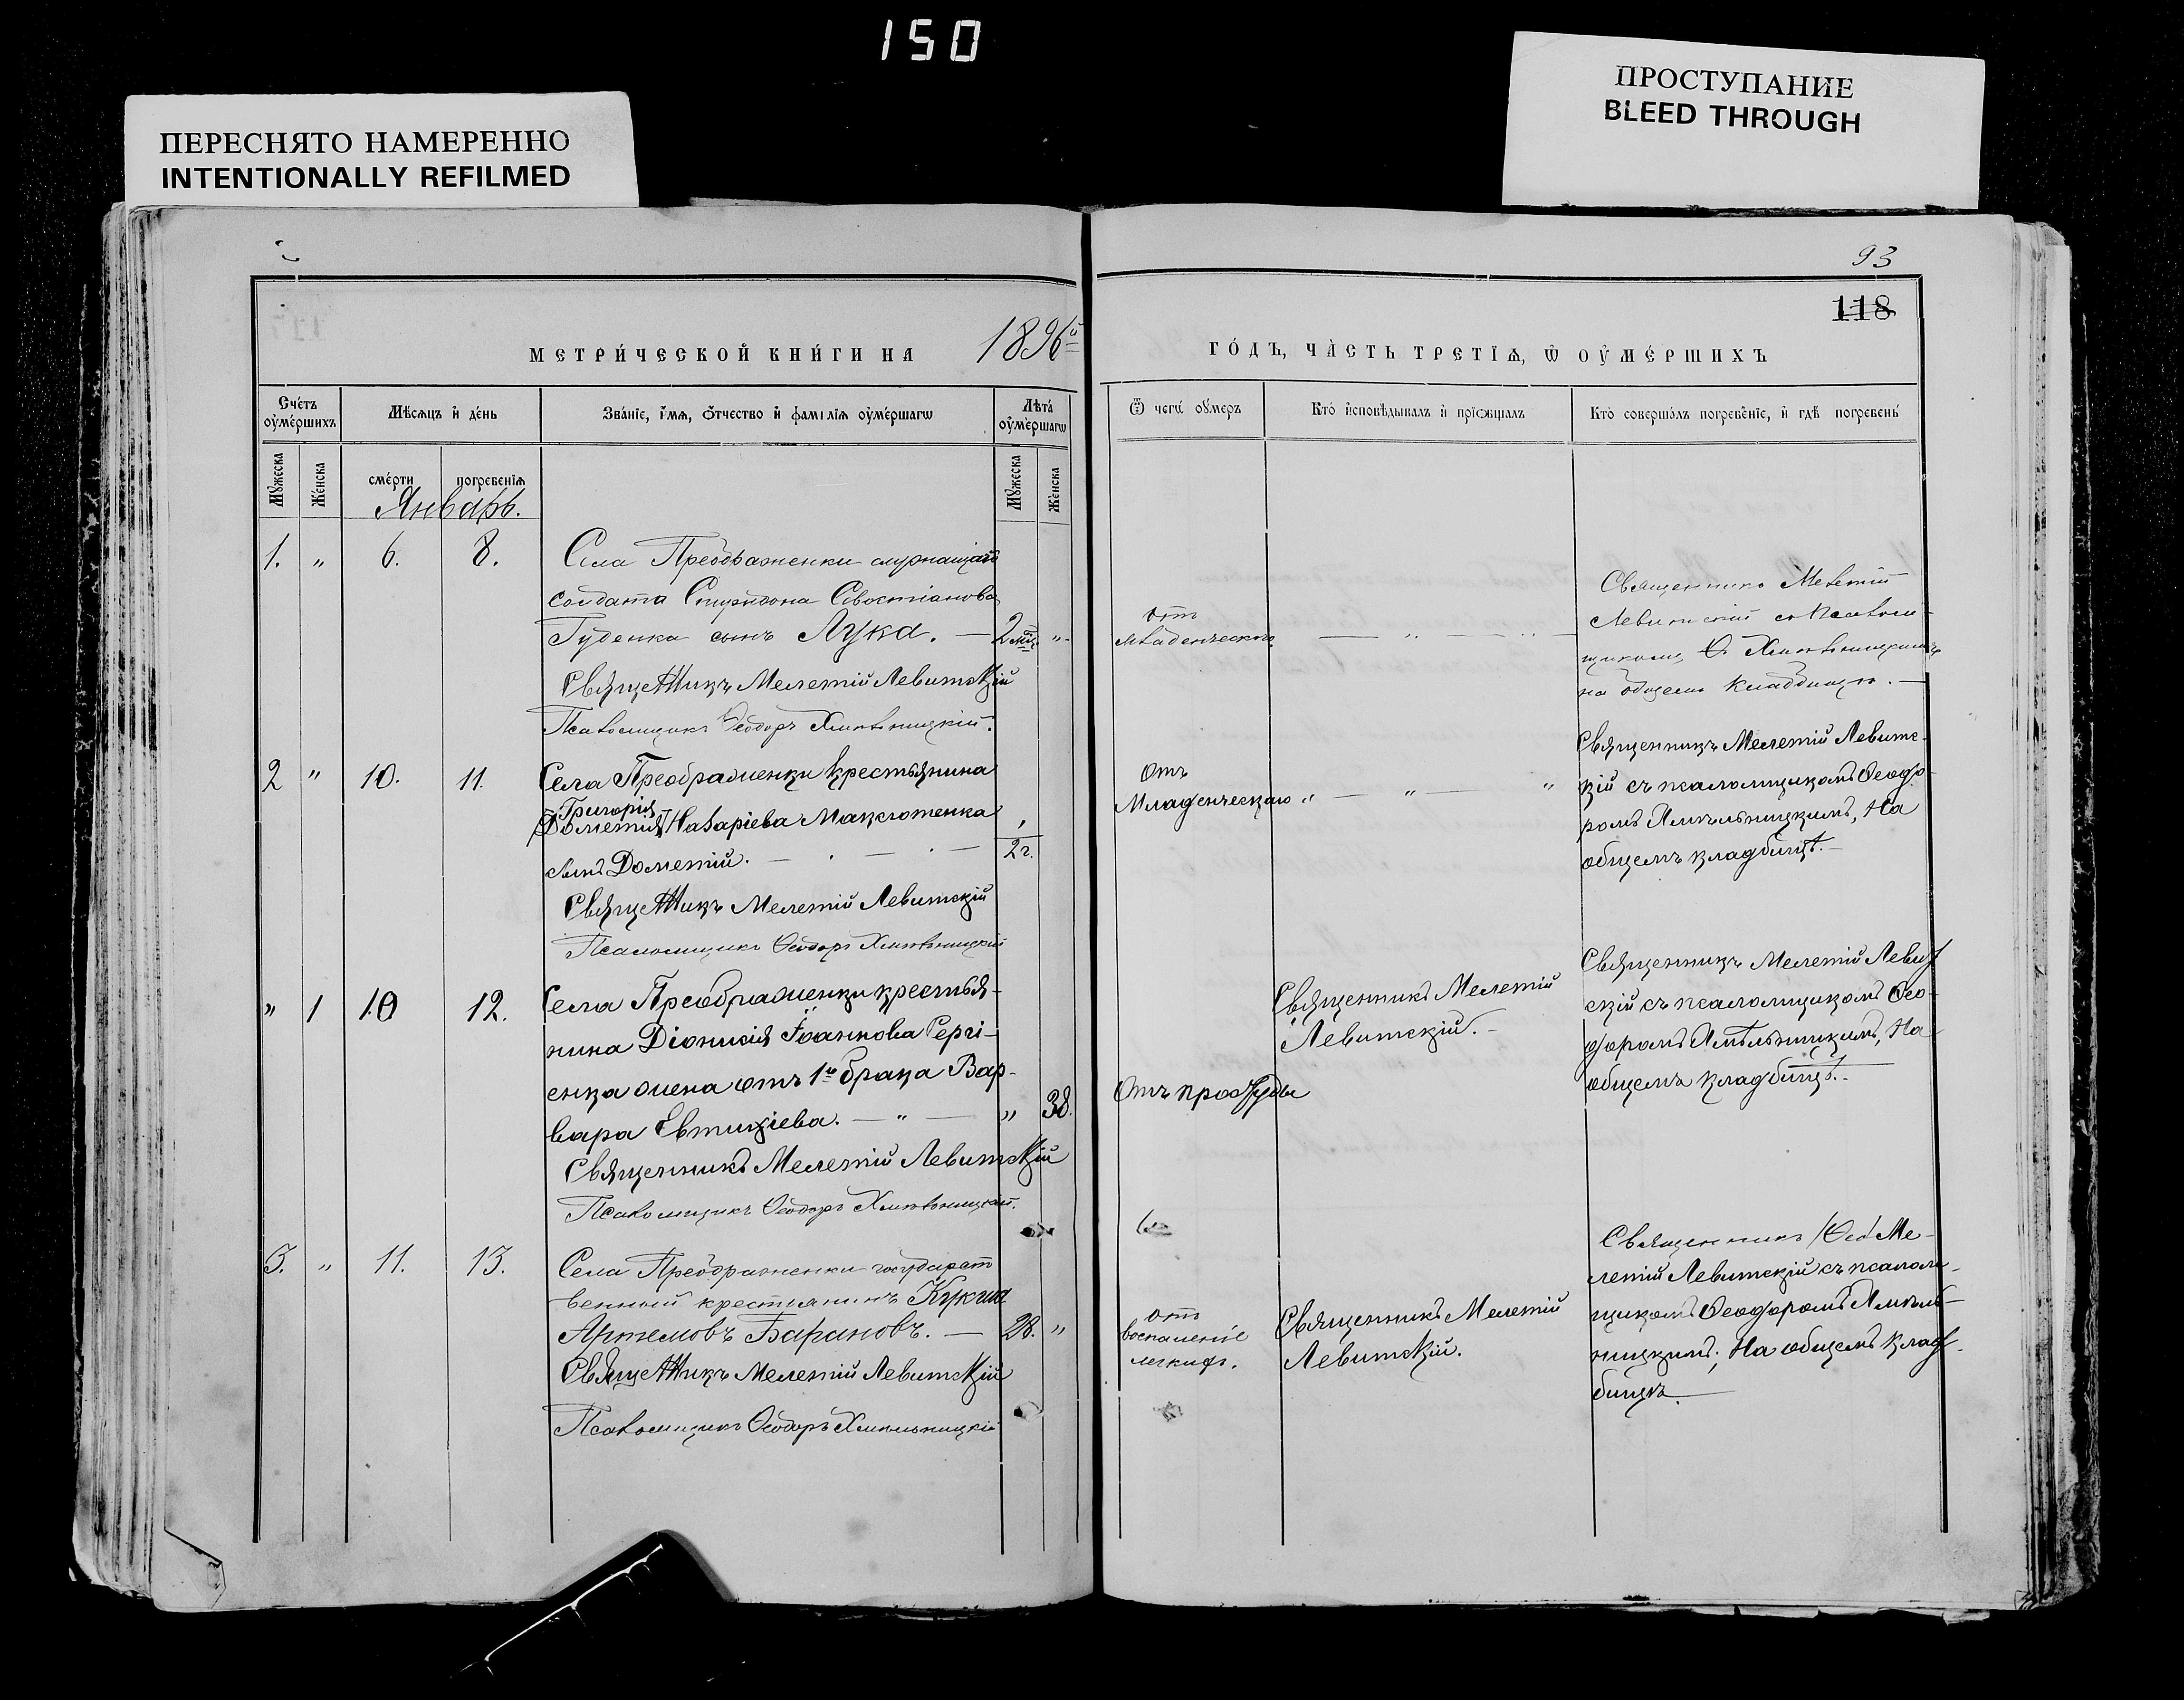 150
ПЕРЕСНЯТО НАМЕРЕННО
INTENTIONALLY REFILMED
ПРОСТУПАНИЕ
BLEED THROUGH
93
118
МЕТРИ́ЧЕСКОЙ КНИ́ГИ НА 1896й
ГО́ДЪ, ЧА̀СТЬ ТРЕТІѦ, Ѡ҆ ОУ҆МЕ́РШИХЪ
Сче́тъ оу҆ме́ршихъ
Мѣ́сѧцъ и҆ де́нь
Зва́ніе, и҆́мѧ, ѻ҆́тчество и҆ фамі́лїѧ оу҆ме́ршагѡ
Лѣта̀ оу҆ме́ршагѡ
Ѿ чегѡ̀ оу҆́меръ
Кто̀ и҆сповѣ́дывалъ и҆ прїѡбща́лъ
Кто̀ соверша́лъ погребе́ніе, и҆ гдѣ̀ погребены̀
Мꙋ́жеска
Же́нска
сме́рти
погребе́нїѧ
Мꙋ́жеска
Же́нска
Январь.
1. „ 6. 8. Села Преображенки служащаго
солдата Спиридона Севостіанова
Гуденка сынъ Лука. — 2 мц. „
Священникъ Мелетій Левитскій
Псаломщикъ Ѳеодоръ Хмѣльницкій.
отъ
младенческаго — „ —
Священникъ Мелетій
Левитскій со псаломщикомъ
Ѳ. Хмѣльницкимъ
на общемъ кладбищѣ. —
2 „ 10. 11. Села Преображенки крестьянина
Григорія
[Дометія] Назаріева Максютенка
сынъ Дометій. — . — . — 2 г.
Священникъ Мелетій Левитскій
Псаломщикъ Ѳеодоръ Хмѣльницкій
Отъ
Младенческаго „ — „ — „
Священникъ Мелетій Левитс-
кій съ псаломщикомъ Ѳеодо-
ромъ Хмѣльницкимъ, На
общемъ кладбищѣ. —
„ 1 10 12. Села Преображенки крестья-
нина Діонисія Іоаннова Сергі-
енка жена отъ 1го брака Вар-
вара Евтихіева. — „ — „ 38.
Священникъ Мелетій Левитскій
Псаломщикъ Ѳеодоръ Хмѣльницкій.
Отъ простуды
Священникъ Мелетій
Левитскій. —
Священникъ Мелетій Левит
скій съ псаломщикомъ Ѳео-
доромъ Хмѣльницкимъ, На
общемъ кладбищѣ. —
3. „ 11. 13. Села Преображенки государст
венный крестианинъ
Артемовъ Барановъ. — 28. „
Священникъ Мелетій Левитскій
Псаломщикъ Ѳеодоръ Хмѣльницкій
отъ
воспаленіе
легкихъ.
Священникъ Мелетій
Левитскій.
Священникъ Ме-
летій Левитскій съ псалом-
щикомъ Ѳеодоромъ Хмѣль-
ницкимъ; На общемъ клад-
бищѣ.